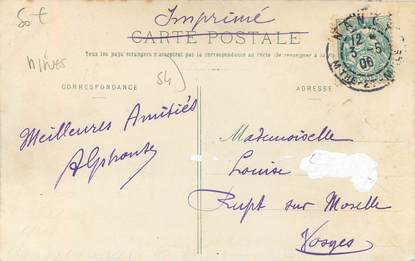 50 €
Imprimé
CARTE POSTALE
Tous les pays étrangers n'acceptent pas la correspondance au recto (se renseigner à la
MINES
54
CORRESPONDANCE
ADRESSE
12
3-5
06
Meilleures Amitiés
Alphonse
Mademoiselle
Louise
Rupt sur Moselle
Vosges